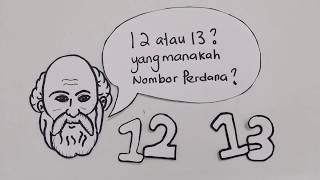 12 atau 13?
yang manakah
Nombor Perdana?
12 13